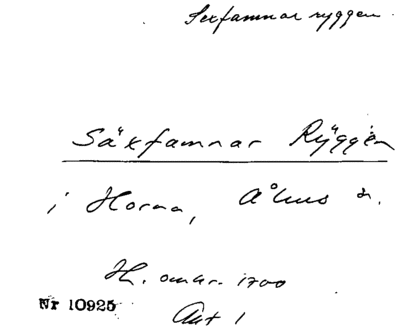 Sexfamnar ryggen
Säxfamnar Ryggen
i Horna, Åhus
H. omar. 1700
Nr 10925
Akt 1